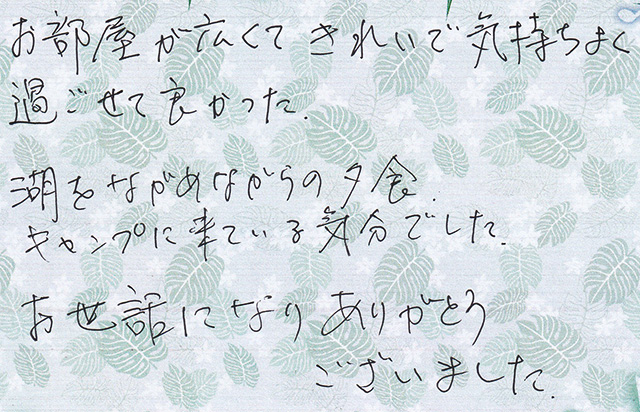 お部屋が広くてきれいで気持ちよく
過ごせて良かった.
湖をながめながらの夕食.
キャンプに来ている気分でした.
お世話になりありがとう
ございました.